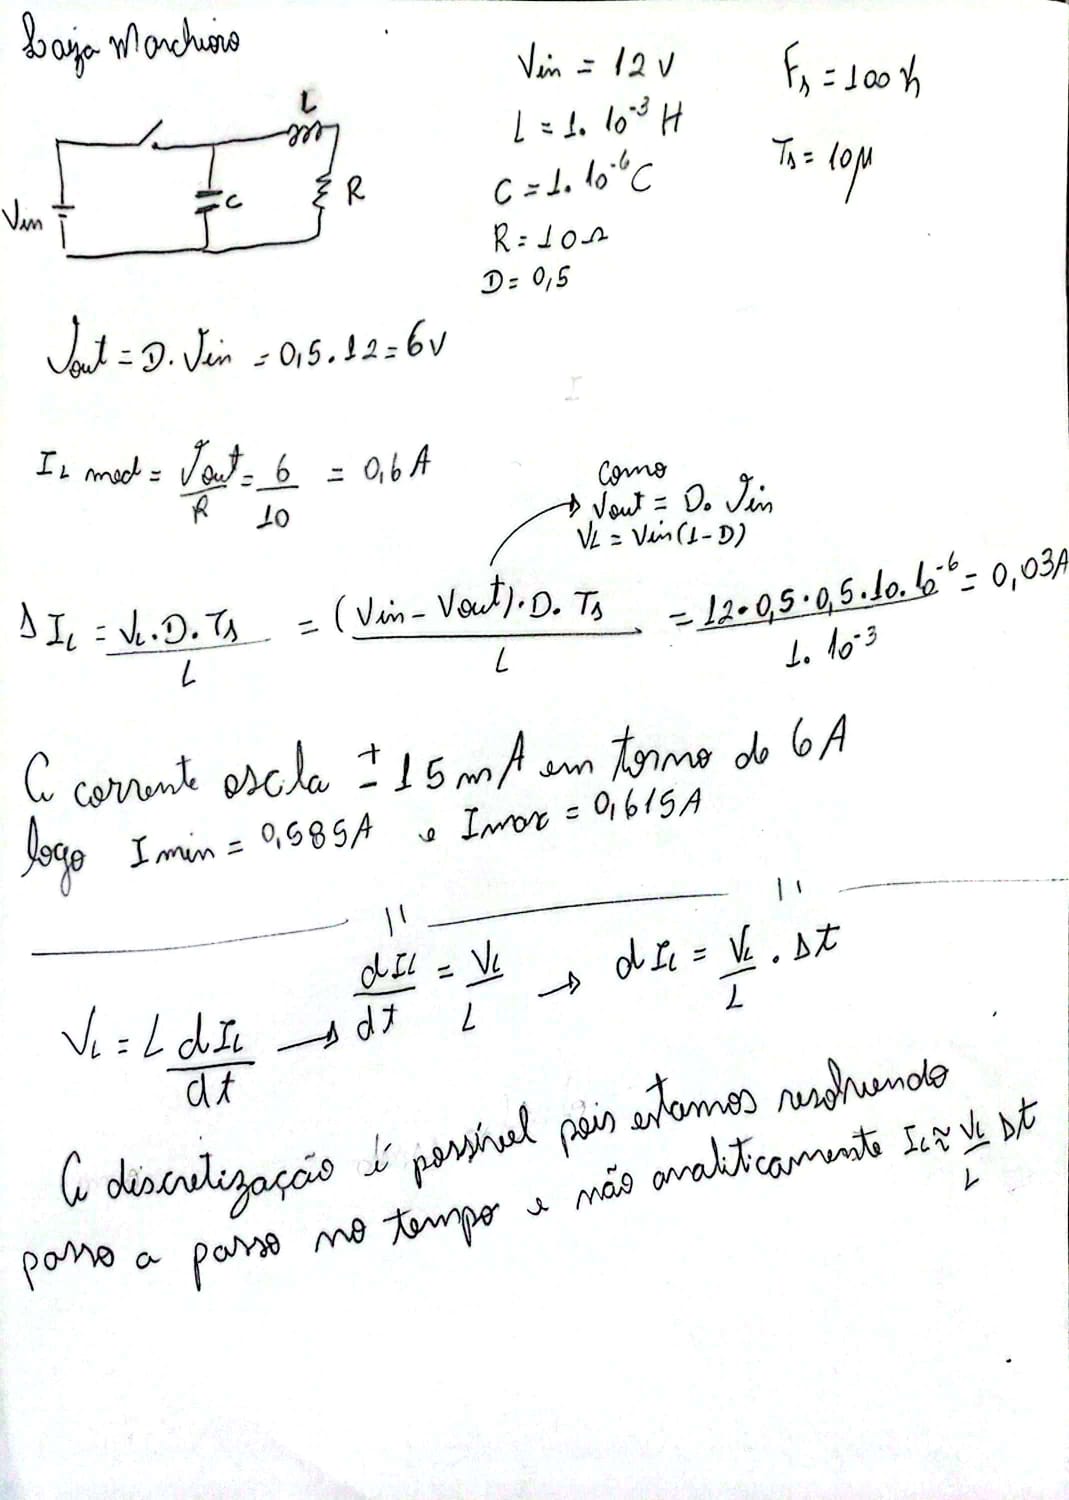 Laiza Marchioro
Vin = 12 V
Fs = 100 k
L = 1. 10⁻³ H
Ts = 10µ
C = 1. 10⁻⁶ C
R = 10 Ω
D = 0,5
L
Vin
C
R
Vout = D. Vin = 0,5 . 12 = 6 V
IL med = Vout/R = 6/10 = 0,6 A
Como
Vout = D. Vin
VL = Vin (1-D)
Δ IL = VL . D. Ts / L = (Vin - Vout) . D. Ts / L = 12 . 0,5 . 0,5 . 10. 10⁻⁶ / 1. 10⁻³ = 0,03A
A corrente oscla ± 15 mA em torno do 6 A
logo I min = 0,585A e I max = 0,615A
VL = L dIL/dt → dIL/dt = VL/L → d IL = VL/L . Δt
A discretização é possível pois estamos resolvendo
passo a passo no tempo e não analiticamente IL ≈ VL/L Δt